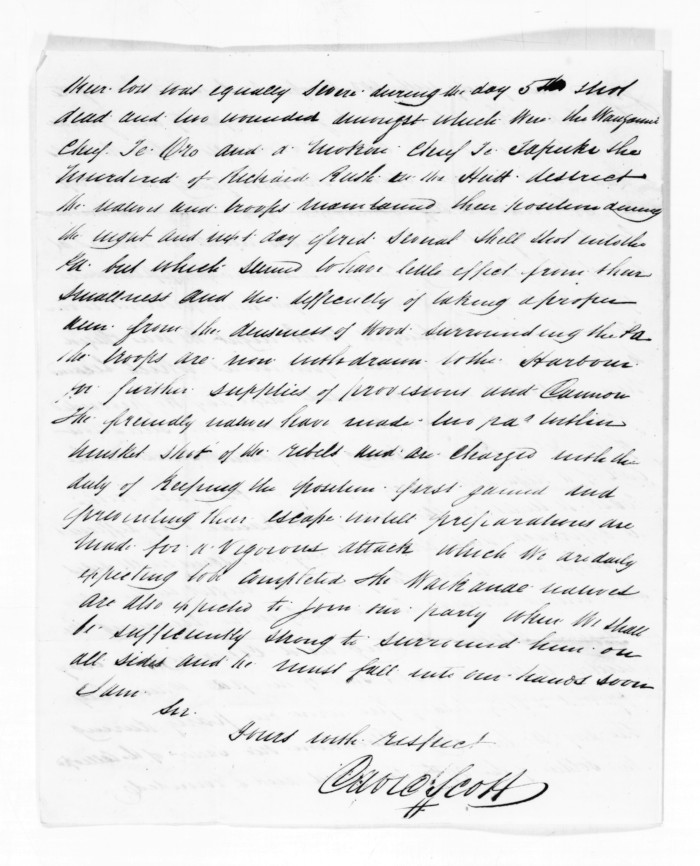 their loss was equally severe during the day 5 shot
dead and two wounded amongst which were the Wanganui
Chief Te Oro and a Chief Te Tapuke the
murdered of Richard Rush in the Hutt district
the natives and troops maintained their position during
the night and next day fired several shell shot into the
Pa but which seemed to have little effect from their
smallness and the difficulty of taking a proper
aim from the denseness of wood surrounding the Pa
the troops are now withdrawn to the Harbour
for further supplies of provisions and Cannon
The friendly natives have made two pas within
musket shot of the rebels and are charged with the
duty of keeping the position first gained and
preventing their escape untill preparations are
made for a vigorous attack which we are daily
expecting to completed the Waikanae natives
are also expected to join our party when we shall
be sufficiently strong to surround him on
all sides and he must fall into our hands soon
I am
Sir
Yours with respect
David Scott